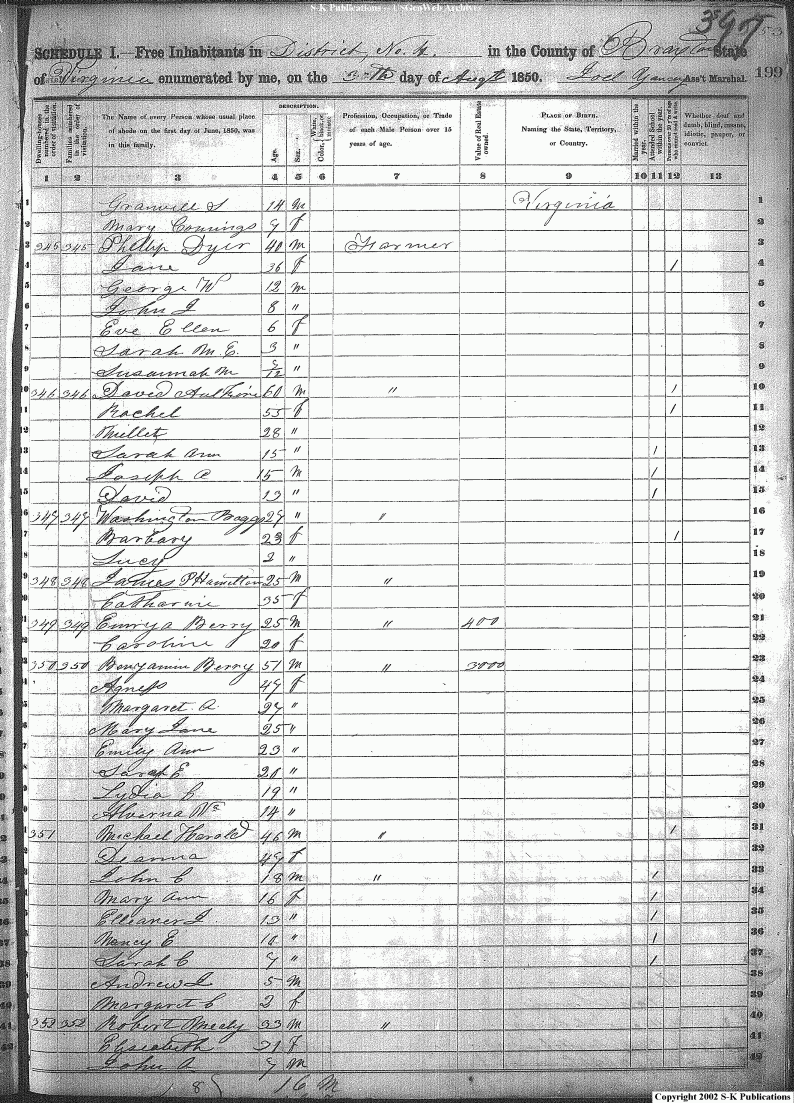 S-K Publications -- USGenWeb Archives
397
SCHEDULE I.—Free Inhabitants in District No. 4. in the County of Braxton State
of Virginia enumerated by me, on the 30th day of Augt 1850. Joel Yancey Ass't Marshal. 199
Dwelling-houses numbered in the order of visitation. Families numbered in the order of visitation. The Name of every Person whose usual place of abode on the first day of June, 1850, was in this family. DESCRIPTION. Age. Sex. Color, White, black, or mulatto. Profession, Occupation, or Trade of each Male Person over 15 years of age. Value of Real Estate owned. PLACE OF BIRTH. Naming the State, Territory, or Country. Married within the year. Attended School within the year. Persons over 20 y'rs of age who cannot read & write. Whether deaf and dumb, blind, insane, idiotic, pauper, or convict.
1 2 3 4 5 6 7 8 9 10 11 12 13
1 Granvill S 14 m Virginia 1
2 Mary Connings 9 f 2
3 345 345 Phillip Dyer 40 m Farmer 3
4 Jane 36 f / 4
5 George W 12 m 5
6 John J 8 " 6
7 Eve Ellen 6 f 7
8 Sarah M. E. 3 " 8
9 Susannah M 9/12 " 9
10 346 346 David 60 m " / 10
11 Rachel 55 f / 11
12 Millet 28 " 12
13 Sarah Ann 15 " / 13
14 Joseph C 15 m / 14
15 David 13 " / 15
16 347 347 Washington Boggs 29 " " 16
17 Barbary 23 f / 17
18 Lucy 2 " 18
19 348 348 James P Hamilton 25 m " 19
20 Catharine 35 f 20
21 349 349 Berry 25 m " 400 21
22 Caroline 20 f 22
23 350 350 Benjamin Berry 51 m " 3000 23
24 Agness 49 f 24
25 Margaret A. 27 " 25
26 Mary Jane 25 " 26
27 Emily Ann 23 " 27
28 Sarah E 20 " 28
29 Lydia C 19 " 29
30 Alverna 14 " 30
31 351 Michael Harold 46 m " / 31
32 49 f 32
33 John C 18 m " / 33
34 Mary Ann 16 f / 34
35 Elleaner J. 13 " / 35
36 Nancy E 10 " / 36
37 Sarah C 9 " / 37
38 Andrew J 5 m 38
39 Margaret C 2 f 39
40 352 352 Robert Mealy 33 m " 40
41 Elizabeth 31 f 41
42 John A 9 m 42
16 M
Copyright 2002 S-K Publications